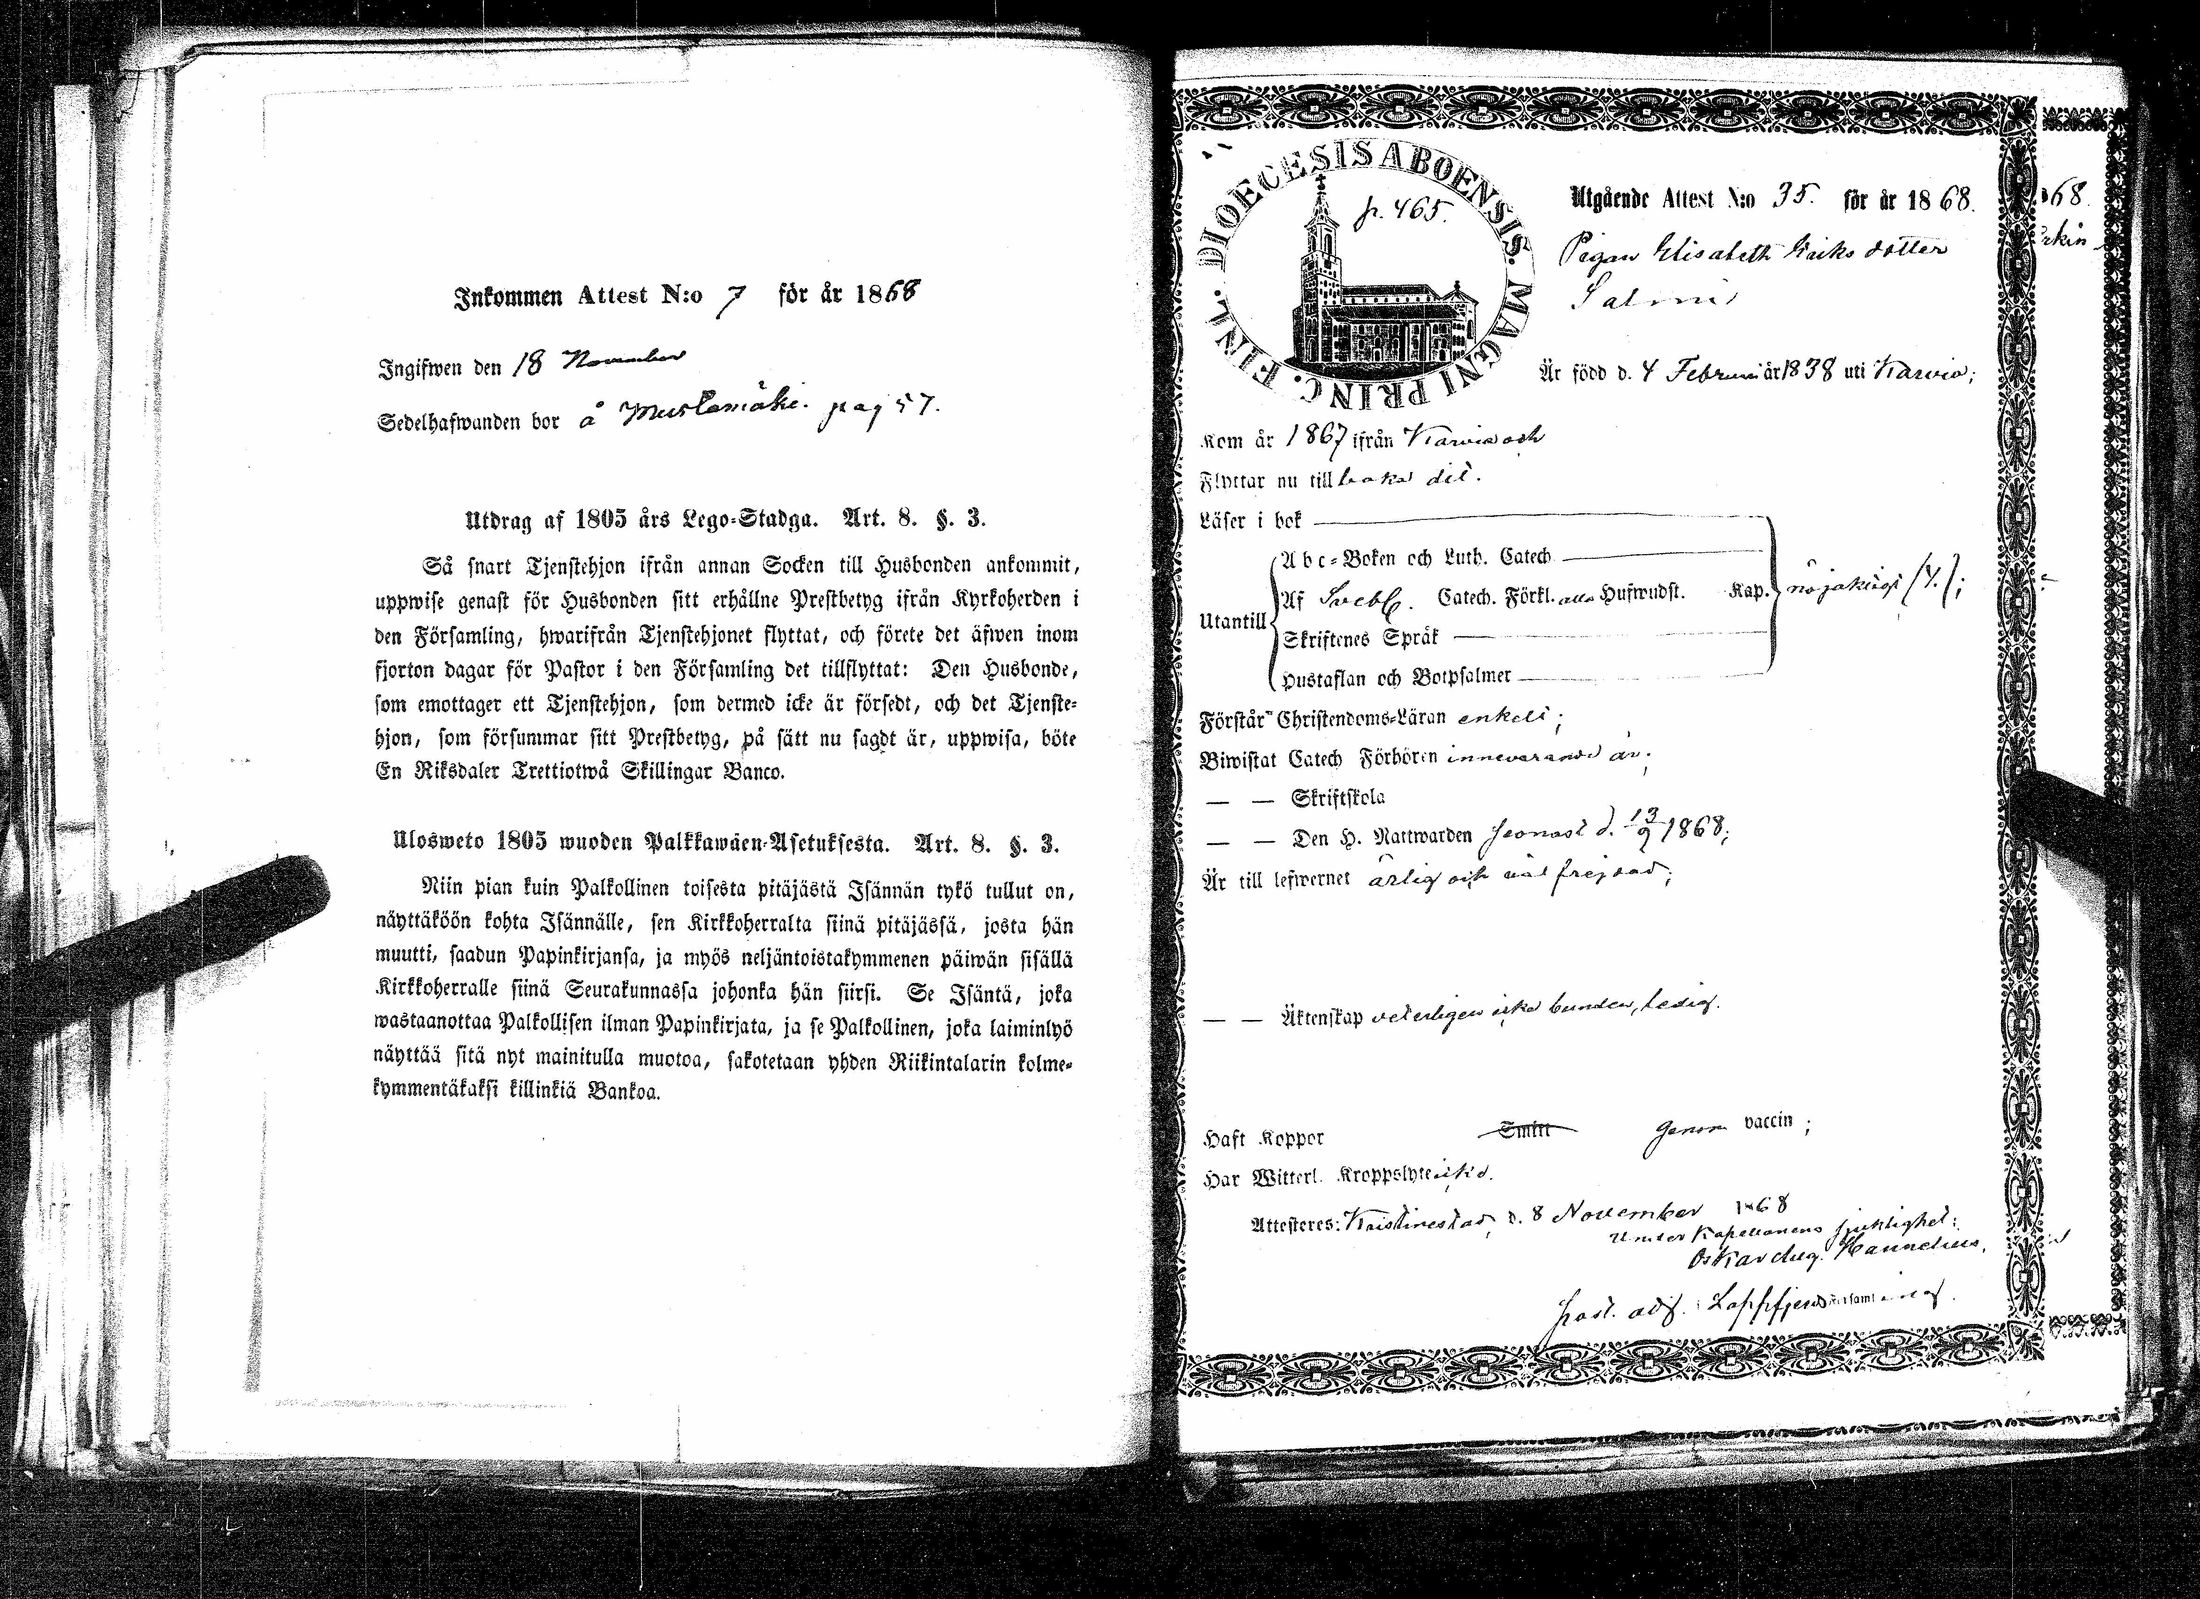 Inkommen Attest N:o 7 för år 1868
Ingifwen den 18 November
Sedelhafwanden bor å Mustamäki. pag 57.
Utdrag af 1805 års Lego-Stadga. Art. 8. §. 3.
Så snart Tjenstehjon ifrån annan Socken till Husbonden ankommit,
uppwise genast för Husbonden sitt erhållne Prestbetyg ifrån Kyrkoherden i
den Församling, hwarifrån Tjenstehjonet flyttat, och förete det äfwen inom
fjorton dagar för Pastor i den Församling det tillflyttat: Den Husbonde,
som emottager ett Tjenstehjon, som dermed icke är försedt, och det Tjenste-
hjon, som försummar sitt Prestbetyg, på sätt nu sagdt är, uppwisa, böte
En Riksdaler Trettiotwå Skillingar Banco.
Ulosweto 1805 wuoden Palkkawäen-Asetuksesta. Art. 8. §. 3.
Niin pian kuin Palkollinen toisesta pitäjästä Isännän tykö tullut on,
näyttäköön kohta Isännälle, sen Kirkkoherralta siinä pitäjässä, josta hän
muutti, saadun Papinkirjansa, ja myös neljäntoistakymmenen päiwän sisällä
Kirkkoherralle siinä Seurakunnassa johonka hän siirsi. Se Isäntä, joka
wastaanottaa Palkollisen ilman Papinkirjata, ja se Palkollinen, joka laiminlyö
näyttää sitä nyt mainitulla muotoa, sakotetaan yhden Riikintalarin kolme-
kymmentäkaksi killinkiä Bankoa.
DIOECESIS ABOENSIS. MAGNI PRINC. FINL.
p. 465.
Utgående Attest N:o 35. för år 1868.
Pigan Elisabeth Eriksdotter
Salmi
Är född d. 4 Februari år 1838 uti Karvia;
Kom år 1867 ifrån Karvia och
Flyttar nu tillbaka dit.
Läser i bok
Abc-Boken och Luth. Catech
Utantill Af Svebil. Catech. Förkl. alla Hufwudst. Kap. nöjaktigt (4.);
Skriftenes Språk
Hustaflan och Botpsalmer
Förstår Christendoms-Läran enkelt;
Biwistat Catech Förhören innevarande år;
— — Skriftskola
— — Den H. Nattwarden senast d. 13/9 1868;
Är till lefwernet ärlig och väl frejdad;
— — Äktenskap veterligen icke bunden, ledig.
Haft Koppor Smitt genom vaccin;
Har Witterl. Kroppslyte icke.
Attesteres: Kristinestad, d. 8 November 1868
Under Kapellanens sjuklighet:
Oskar Aug. Hannelius,
past. adj. i Lappfjerds Församling.
68.